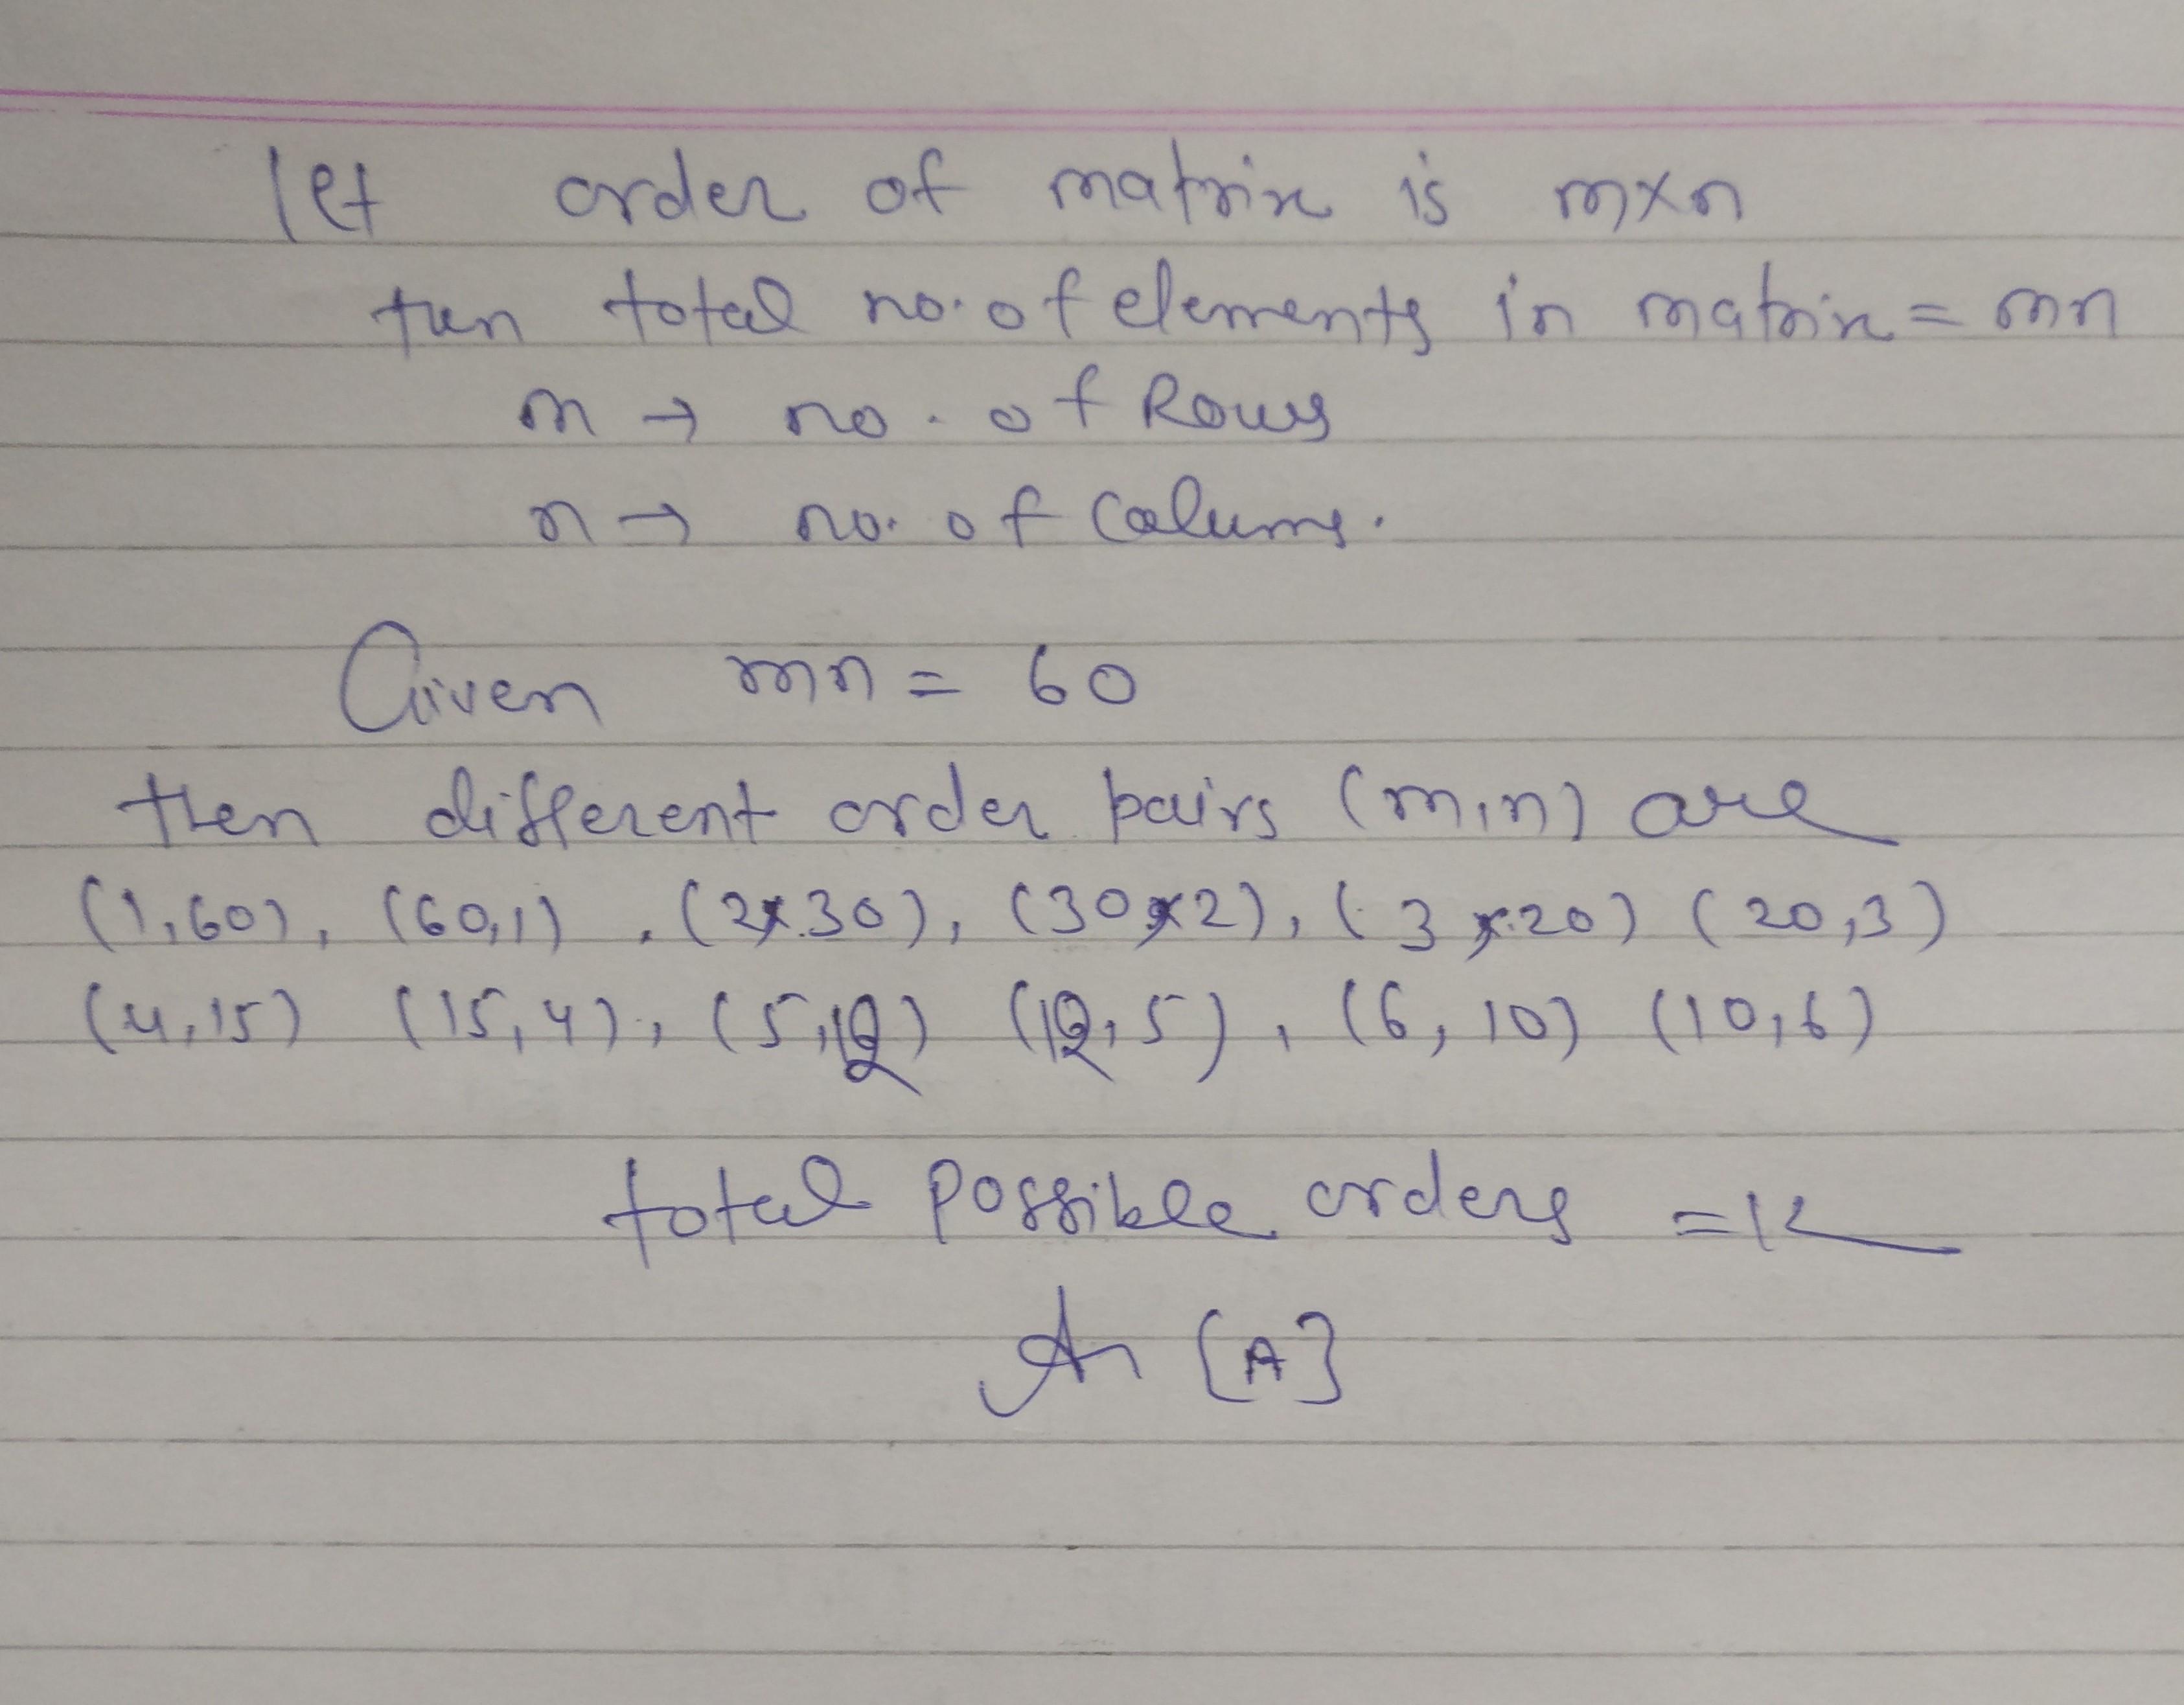 let order of matrix is m×n
then total no. of elements in matrix = mn
m → no. of Rows
n → no. of Colums.
Given mn = 60
then different order pairs (m,n) are
(1,60), (60,1), (2,30), (30,2), (3,20) (20,3)
(4,15) (15,4), (5,12) (12,5), (6,10) (10,6)
total possible orders = 12
An [A]